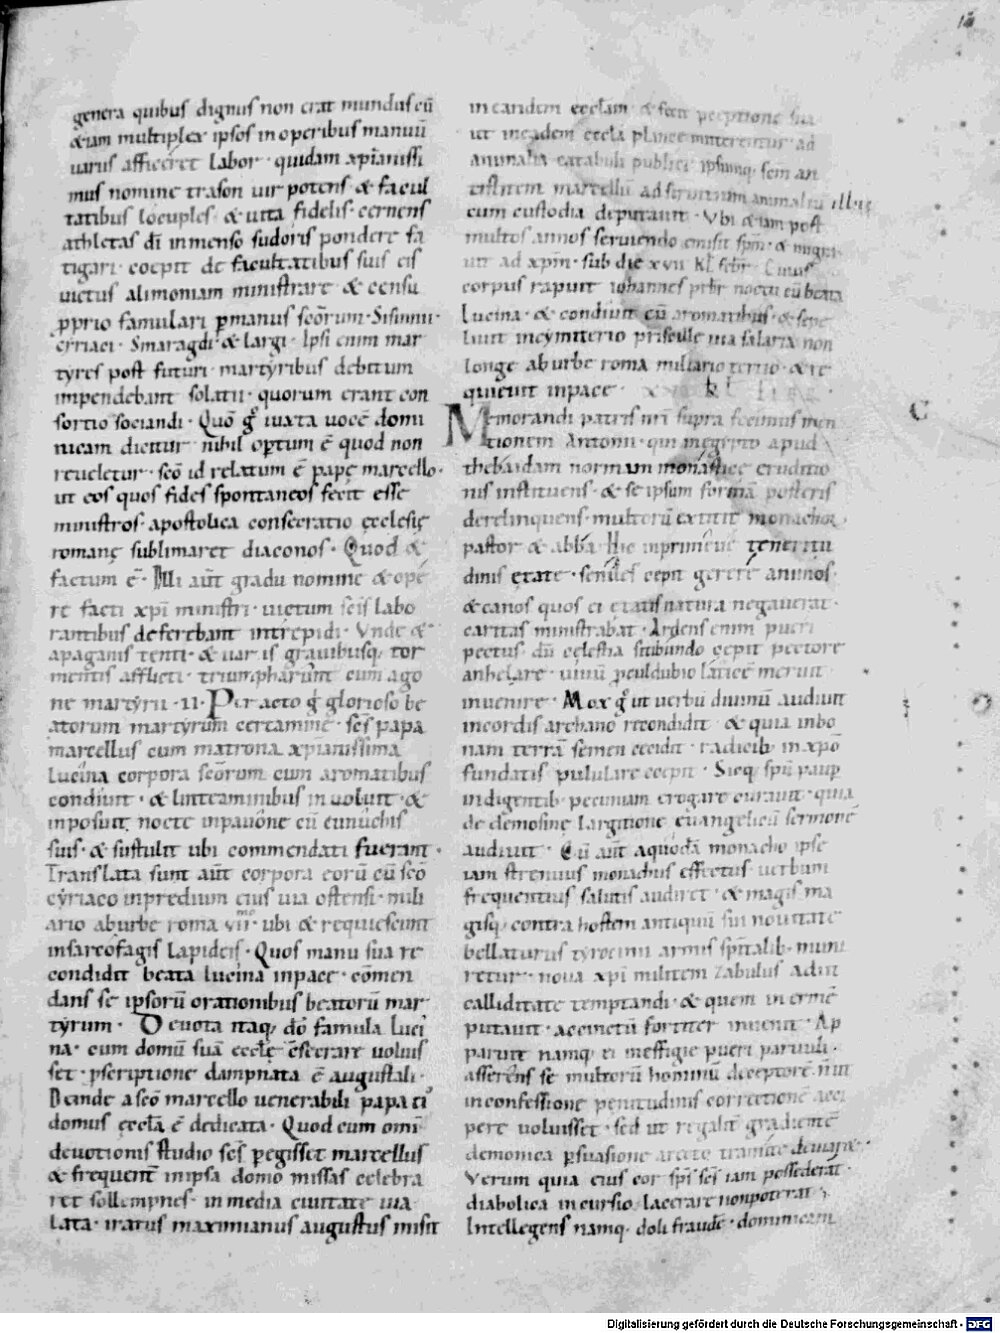 genera quibus dignus non erat mundus cū
& iam multiplex ipsos in operibus manuū
uarius afficeret labor · quidam xp̄ianissi
mus nomine trason uir potens & facul
tatibus locuples · & uita fidelis · cernens
athletas dī inmenso sudoris pondere fa
tigari · coepit de facultatibus suis eis
uictus alimoniam ministrare & censu
p̱prio famulari p̱manus sc̄orum · Sisinnii ·
cyriaci · Smaragdi & largi · Ipsi enim mar
tyres post futuri · martyribus debitum
impendebant solatii · quorum erant con
sortio sociandi · Quō g̊ iuxta uocē domi
nicam dicitur nihil optum ē quod non
reueletur · sc̄o id relatum ē papę marcello ·
ut eos quos fides spontaneos fecit esse
ministros apostolica consecratio ęcclesię
romanę sublimaret diaconos · Quod &
factum ē · Illi aut̄ gradu nomine & ope
re facti xp̄i ministri · uictum sc̄is labo
rantibus deferebant intrepidi · Unde &
a paganis tenti · & uariis grauibusq; tor
mentis afflicti · triumpharunt cum ago
ne martyrii · II · Peracto g̊ glorioso be
atorum martyrum certamine · sc̄s papa
marcellus cum matrona xp̄ianissima
lucina corpora sc̄orum cum aromatibus
condiuit · & linteaminibus inuoluit · &
inposuit nocte in pauone cū eunuchis
suis · & sustulit ubi commendati fuerant ·
Translata sunt aut̄ corpora eorū cū sc̄o
cyriaco in predium eius uia ostensi · mili
ario ab urbe roma VIII · ubi & requiescunt
in sarcofagis lapideis · Quos manu sua re
condidit beata lucina in pace · cōmen
dans se ipsorū orationibus beatorū mar
tyrum · Deuota itaq; dō famula luci
na · cum domū suā ecclę c̄secrare uoluis
set · p̱scriptione dampnata ē augustali ·
Deinde a sc̄o marcello uenerabili papa ti
domus ęccła ē dedicata · Quod cum omī
deuotionis studio sc̄s p̱egisset marcellus
& frequent̄ in ipsa domo missas celebra
ret sollempnes · in media ciuitate uia
lata · iratus maximianus augustus misit
in eandem eccłam · & fecit
ut in eadem eccła plancę mitterentur · ad
animalia catabuli publici ipsumq; sc̄m an
tistitem marcellū ad seruitium animaliū illic
cum custodia deputauit · Ubi & iam post
multos annos seruiendo emisit sp̄m · & migra
uit ad xp̄m · sub die XVII kł febr · Cuius
corpus rapuit iohannes pr̄br noctu cū beata
lucina · & condiuit cū aromatibus · & sepe
liuit in cymiterio priscille uia salaria non
longe ab urbe roma miliario tertio · & re
quieuit in pace · kł
Memorandi patris nr̄i supra fecimus men
tionem Antonii · qui in egypto apud
thebaidam normam monasticę eruditio
nis instituens · & se ipsum formā posteris
derelinquens · multorū extitit monachor
pastor & abba · Hic in primęue teneritu
dinis ętate · seniles cepit gerere animos ·
& canos quos ei ętatis natura negauerat ·
caritas ministrabat · Ardens enim pueri
pectus dū cęlestia sitibundo cępit pectore
anhelare · uiuū p̱culdubio laticē meruit
inuenire · Mox g̊ ut uerbū diuinū audiuit
in cordis archano recondidit · & quia in bo
nam terrā semen cecidit · radicib; in xp̄o
fundatis pululare coepit · Sicq; sp̄u paup̱
indigentib; pecuniam erogare curauit · quia
de elemosinę largitione euangelicū sermonē
audiuit · Cū aut̄ a quodā monacho ipse
iam strenuus monachus effectus uerbum
frequentius salutis audiret · & magis ma
gisq; contra hostem antiquū sui nouitate
bellaturus tyrocinii armis sp̄italib; muni
retur · noua xp̄i militem zabulus adiit
calliditate temptandi · & quem inermē
putauit · accinctū fortiter inuenit · Ap
paruit namq; ei in effigie pueri paruuli ·
asserens se multorū hominū deceptorē nūc
in confessione penitudinis correctionē acci
pere uoluisset · sed ut regalit̄ gradientē
demonica p̱suasione arcto tramite deuiare ·
Uerum quia eius cor sp̄s sc̄s iam possederat ·
diabolica incursio lacerare non poterat ·
Intellegens namq; doli fraudē · dominicam
Digitalisierung gefördert durch die Deutsche Forschungsgemeinschaft - DFG